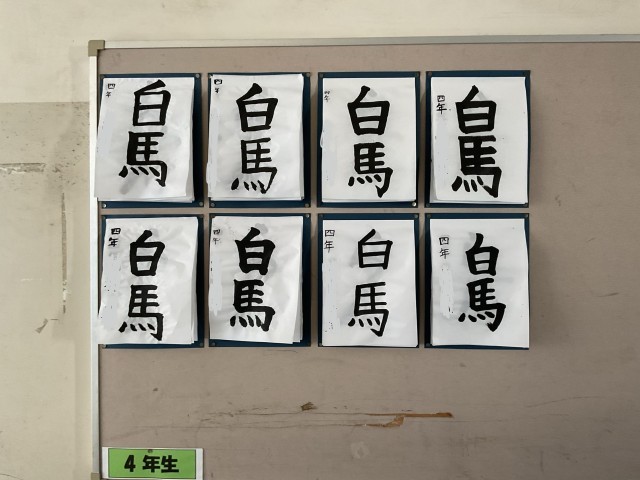 四年
白馬
四年
白馬
四年
白馬
四年
白馬
四年
白馬
四年
白馬
四年
白馬
四年
白馬
4年生